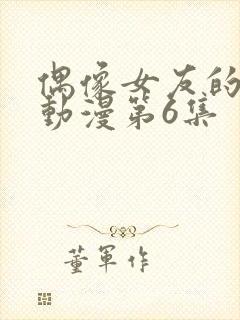 偶像女友的
動漫第6集
董軍作